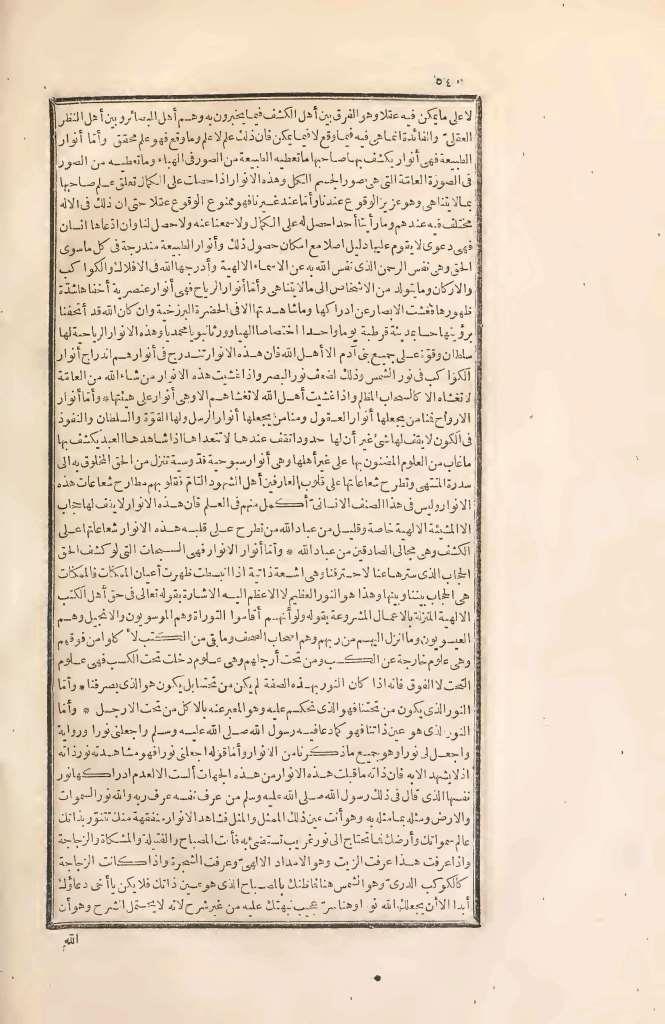 ٥٤٠
لا على ما يمكن فيه عقلا وهو الفرق بين أهل الكشف فيما يخبرون به وهم أهل البصائر وبين أهل النظر
العقلي والفائدة انما هي فيه فيما وقع لا فيما يمكن فان ذلك علم لا علم وما وقع فهو علم محقق وأما أنوار
الطبيعة فهي أنوار يكشف بها صاحبها ما تعطيه الطبيعة من الصور في الهباء وما تعطيه من الصور
في الصورة العامة التي هي صور الجسم الكل وهذه الانوار اذا حصلت على الكمال تعلق علم صاحبها
بما لا يتناهى وهو عزيز الوقوع عندنا وأما عند غيرنا فهو ممنوع الوقوع عقلا حتى ان ذلك في الاله
مختلف فيه عندهم وما رأينا أحدا حصل له على الكمال ولا سمعنا عنه ولا حصل لنا وان ادعاها انسان
فهي دعوى لا يقوم عليها دليل اصلا مع امكان حصول ذلك وأنوار الطبيعة مندرجة في كل ما سوى
الحق وهي نفس الرحمن الذي نفس الله به عن الاسماء الالهية وأدرجها الله في الافلاك والكواكب
والاركان وما يتولد من الاشخاص الى ما لا يتناهى وأما أنوار الرياح فهي أنوار عنصرية أخفاها شدة
ظهورها فغشت الابصار عن ادراكها وما شاهدتها الا في الحضرة البرزخية وان كان الله قد أتحفنا
برؤيتها حسا بمدينة قرطبة يوما واحدا اختصاصا الهيا وورثا نبويا محمديا وهذه الانوار الرياحية لها
سلطان وقوة على جميع بني آدم الا أهل الله فان هذه الانوار تندرج في أنوارهم اندراج أنوار
الكواكب في نور الشمس وذلك لضعف نور البصر واذا غشيت هذه الانوار من شاء الله من العامة
لا تغشاه الا كالسحاب المظلم واذا غشيت أهل الله لا تغشاهم الا وهي أنوار على هيئتها * وأما أنوار
الارواح فمنا من يجعلها أنوار العقول ومنا من يجعلها أنوار الرسل ولها القوة والسلطان والنفوذ
في الكون لا يقف لها شيء غير أن لها حدودا تقف عندها لا تتعداها اذا شاهدها العبد يكشف بها
ما غاب من العلوم المضنون بها على غير أهلها وهي أنوار سبوحية قدوسية تنزل من الحق المخلوق به الى
سدرة المنتهى وتطرح شعاعاتها على قلوب العارفين أهل الشهود التام فقلوبهم مطارح شعاعات هذه
الانوار وليس في هذا الصنف الانساني أكمل منهم في العلم فان هذه الانوار لا يقف لها حجاب
الا المشيئة الالهية خاصة وقليل من عباد الله من تطرح على قلبه هذه الانوار شعاعاتها على
الكشف وهي مجالي الصادقين من عباد الله * وأما أنوار الانوار فهي السبحات التي لو كشف الحق
الحجاب الذي سترها عنا لاحترقنا وهي اشعة ذاتية اذا انبسطت ظهرت أعيان الممكنات فالممكنات
هي الحجاب بيننا وبينها وهذا هو النور العظيم لا الاعظم اليه الاشارة بقوله تعالى في حق أهل الكتب
الالهية المنزلة بالاعمال المشروعة بقوله ولو أنهم أقاموا التوراة وهم الموسويون والانجيل وهم
العيسويون وما أنزل اليهم من ربهم وهم اصحاب الصحف وما بقي من الكتب لأكلوا من فوقهم
وهي علوم خارجة عن الكسب ومن تحت أرجلهم وهي علوم دخلت تحت الكسب فهي علوم
التحت لا الفوق فانه اذا كان النور بهذه الصفة لم يكن من تحتنا بل يكون هو الذي يصرفنا * وأما
النور الذي يكون من تحتنا فهو الذي نحكم عليه وهو المعبر عنه بالاكل من تحت الارجل * وأما
النور الذي هو عين ذاتنا فهو كما دعا فيه رسول الله صلى الله عليه وسلم واجعلني نورا ورواية
واجعل لي نورا وهو جميع ما ذكرنا من الانوار وأما قوله اجعلني نورا فهو مشاهدته نور ذاته
اذ لا يشهد الا به فان ذاته ما قبلت هذه الانوار من هذه الجهات الست الا لعدم ادراكها نور
نفسها الذي قال في ذلك رسول الله صلى الله عليه وسلم من عرف نفسه عرف ربه والله نور السموات
والارض ومثله بما مثله به وهو أنت عين ذلك الممثل والمثل فشاهد الانوار منفهقة منك تتنور بذاتك
عالم سمواتك وأرضك فما تحتاج الى نور غريب تستضيء به فأنت المصباح والفتيلة والمشكاة والزجاجة
واذا عرفت هذا عرفت الزيت وهو الامداد الالهي وعرفت الشجرة واذا كانت الزجاجة
كالكوكب الدري وهو الشمس هنا فما ظنك بالمصباح الذي هو عين ذاتك فلا يكن يا أخي دعاؤك
أبدا الا أن يجعلك الله نورا وهنا سر عجيب نبهتك عليه من غير شرح لانه لا يحتمل الشرح وهو أن
الله